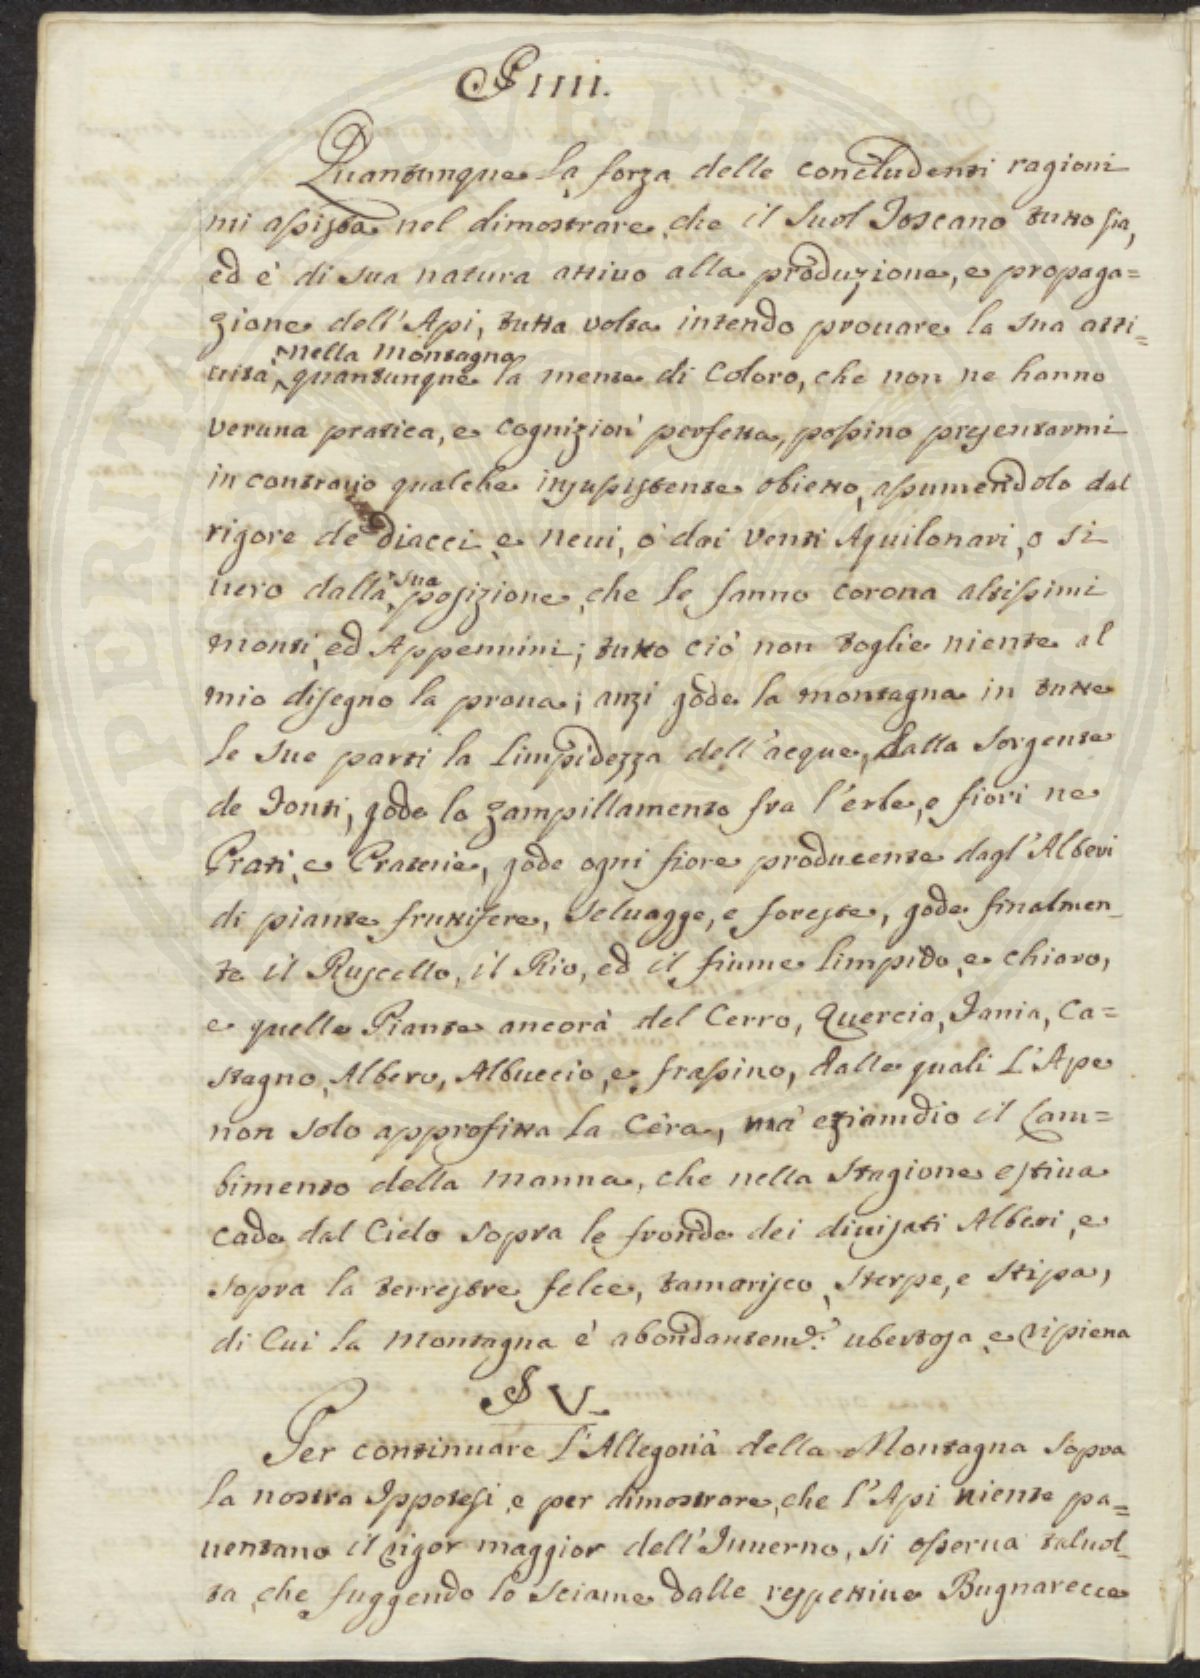 § IIII.
Quantunque la forza delle concludenti ragioni
mi assista nel dimostrare, che il suol Toscano tutto sia,
ed è di sua natura attivo alla produzione, e propaga=
zione dell'Api, tutta volta intendo provare la sua atti=
vità, nella montagna
quantunque la mente di coloro, che non ne hanno
veruna pratica, e cognizion' perfetta, possino presentarmi
in contrario qualche insussistente obietto, assumendolo dal
rigore de diacci, e nevi, ò dai Venti Aquilonari, o si
vero dalla sua posizione, che le fanno corona altissimi
monti, ed Appennini; tutto ciò non toglie niente al
mio disegno la prova; anzi gode la montagna in tutte
le sue parti la limpidezza dell'acque, dalla sorgente
de Fonti, gode lo zampillamento fra l'erbe, e fiori ne
Prati, e Praterie, gode ogni fiore producente dagl'Alberi
di piante fruttifere, selvagge, e foreste, gode finalmen_
te il Ruscello, il Rio, ed il fiume limpido, e chiaro,
e quelle Piante ancorà del Cerro, Quercia, Fania, Ca=
stagno, Albero, Albuccio, e frassino, dalle quali L'Ape
non solo approfitta la Cera, mà eziamdio il Lam=
bimento della manna, che nella stagione estiva
cade dal Cielo sopra le fronde dei divisati Alberi, e
sopra la terrestre felce, tamarisco, sterpe, e stipa,
di Cui la montagna è abondantem.e ubertosa, e ripiena
§ V.
Per continuare L'Allegorià della Montagna sopra
la nostra Ippotesi, e per dimostrare, che l'Api niente pa=
ventano il rigor maggior dell'Inverno, si osserva talvol_
ta, che fuggendo lo sciame dalle respettive Bugnarecce